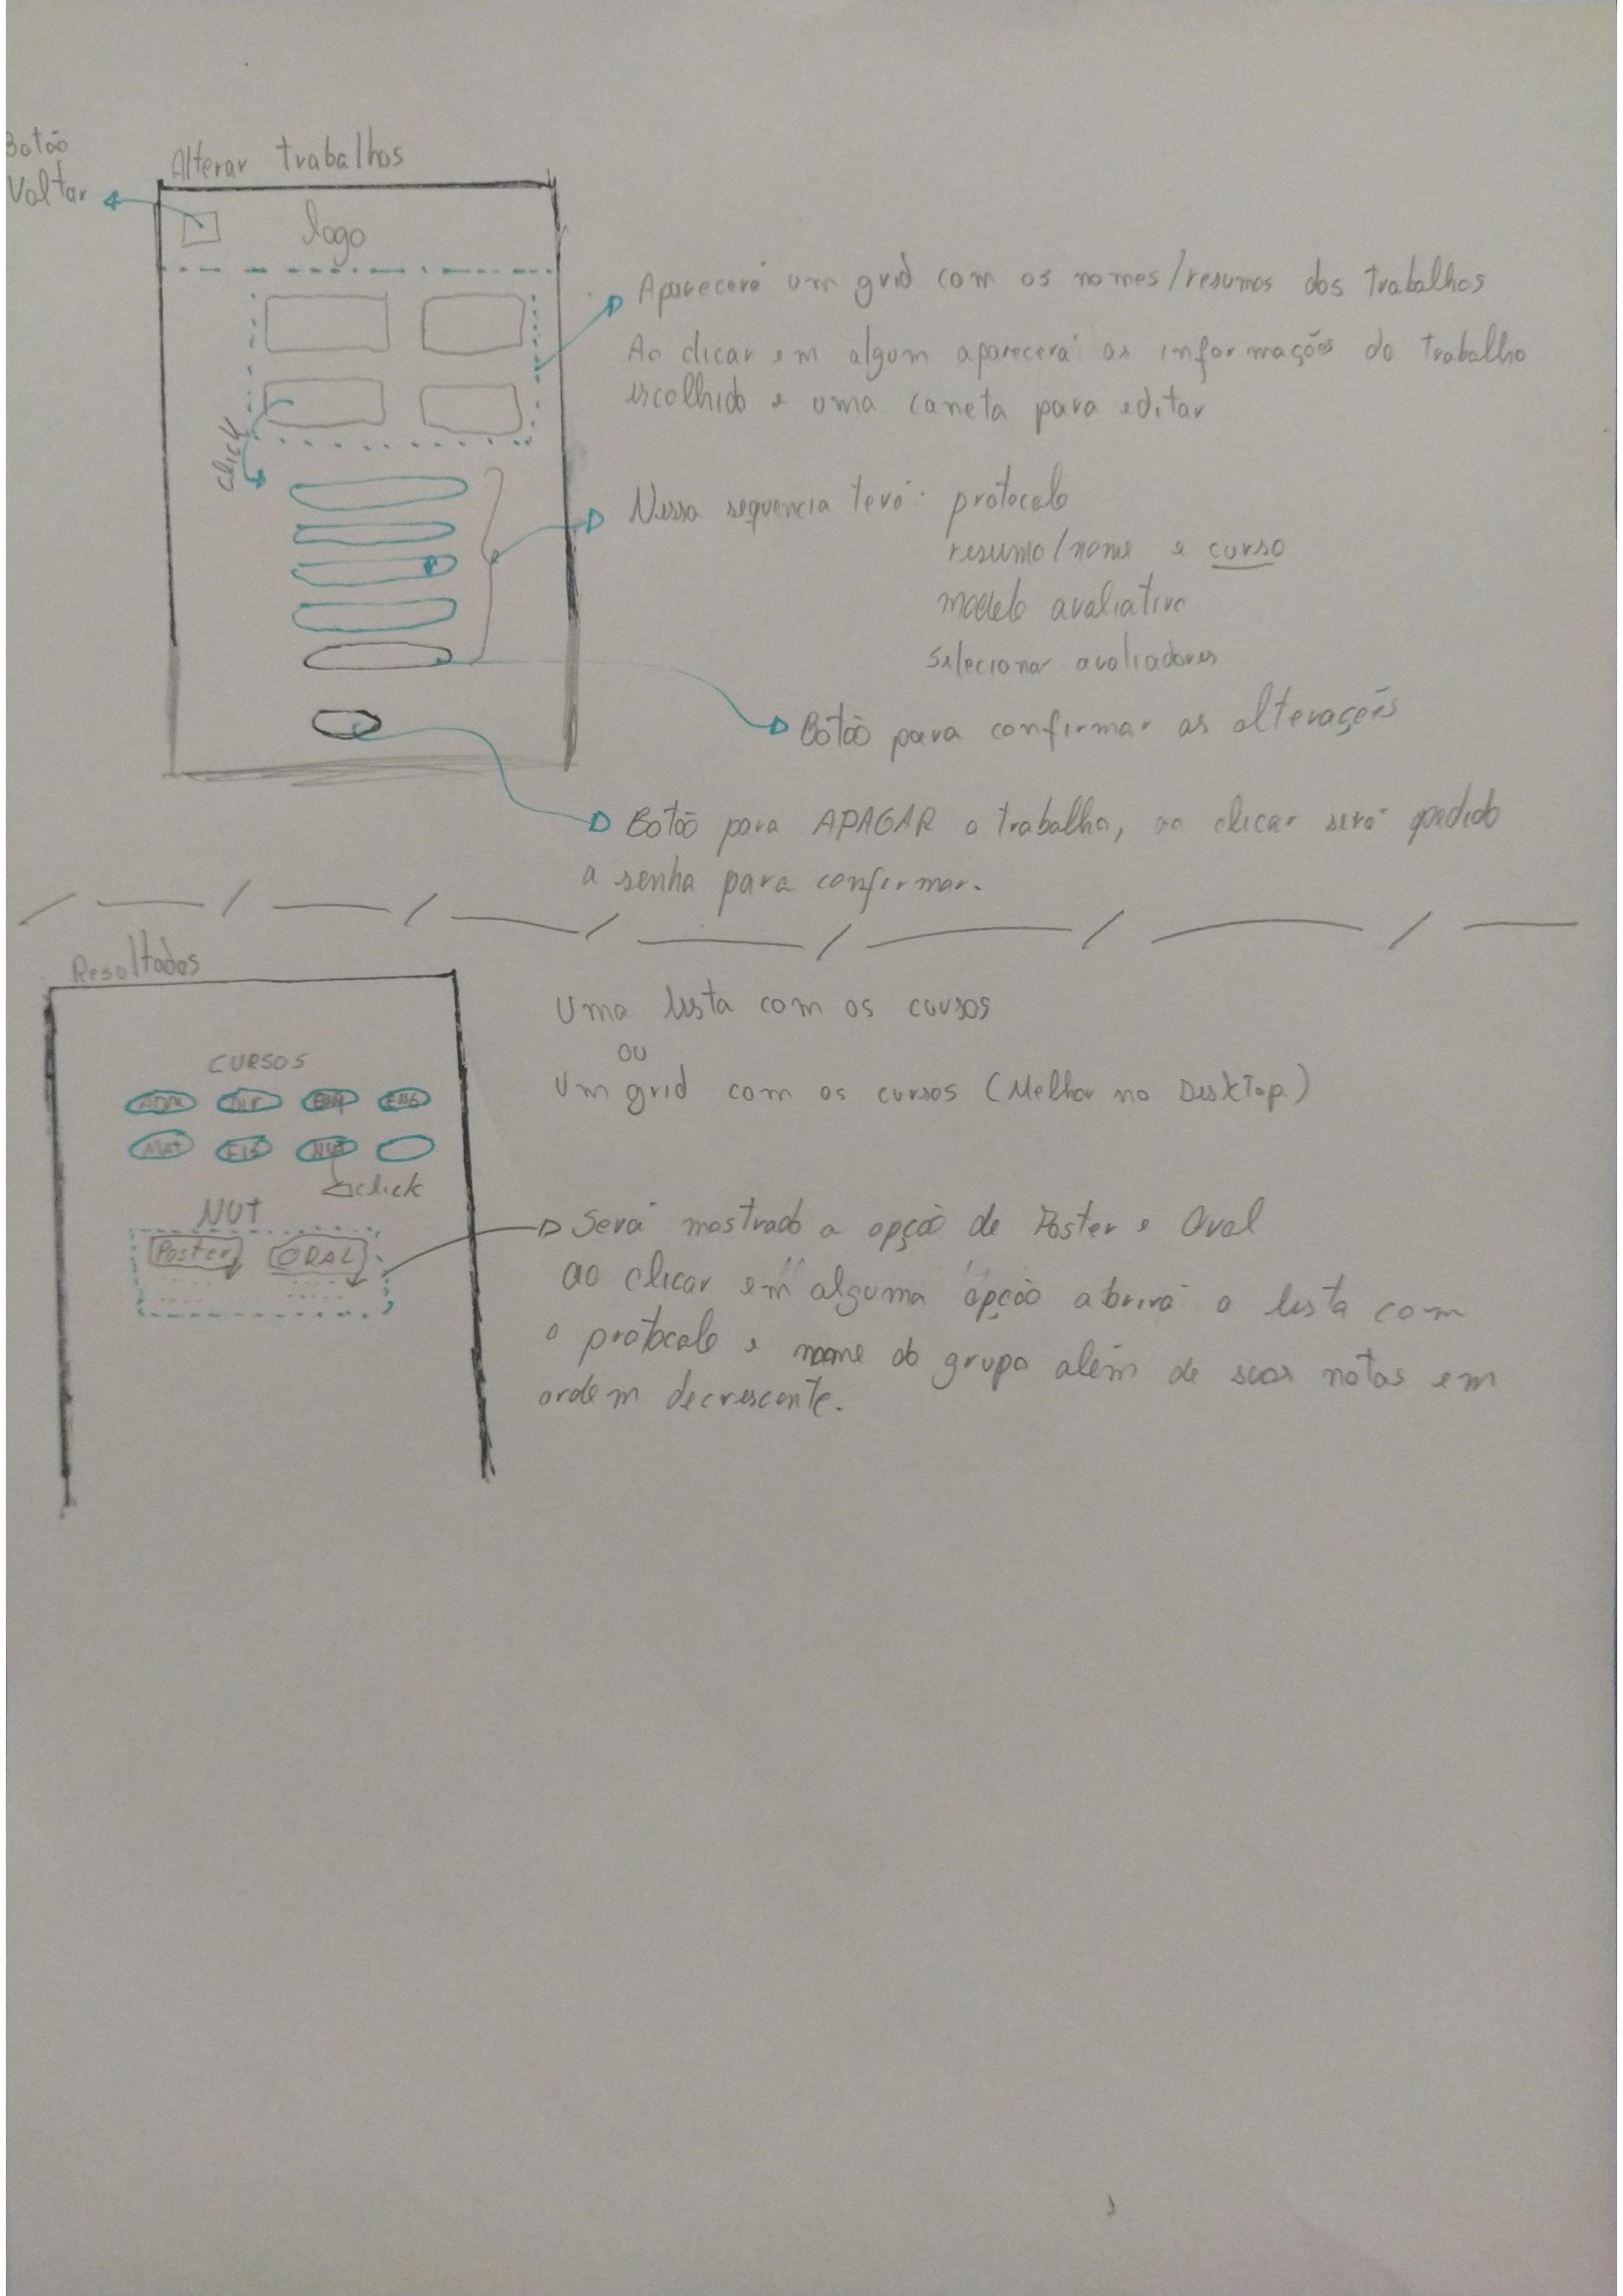 Botão
Voltar
Alterar trabalhos
logo
Aparecerá um grid com os nomes/resumos dos trabalhos
Ao clicar em algum aparecerá as informações do trabalho
escolhido e uma caneta para editar
click
Nessa sequencia terá: protocolo
resumo/nome e curso
modelo avaliativo
selecionar avaliadores
Botão para confirmar as alterações
Botão para APAGAR o trabalho, ao clicar será pedido
a senha para confirmar.
Resultados
Uma lista com os cursos
ou
Um grid com os cursos (Melhor no Desktop)
CURSOS
ADM DIR ENG
MAT FIS NUT
click
NUT
Poster ORAL
Será mostrado a opção de Poster e Oral
ao clicar em alguma opção abrirá a lista com
o protocolo e nome do grupo além de suas notas em
ordem decrescente.